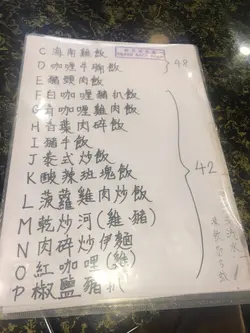 C 海南雞飯
D 咖喱牛腩飯
48
E 豬頸肉飯
F 白咖喱豬扒飯
G 青咖喱雞肉飯
H 香葉肉碎飯
I 豬手飯
J 泰式炒飯
K 酸辣斑塊飯
L 菠蘿雞肉炒飯
42
M 乾炒河(雞、豬)
N 肉碎炒伊麵
O 紅咖喱(雞)
P 椒鹽豬扒